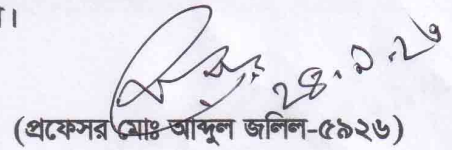 ।
২৪.১.২৬
(প্রফেসর মোঃ আব্দুল জলিল-৫৯২৬)